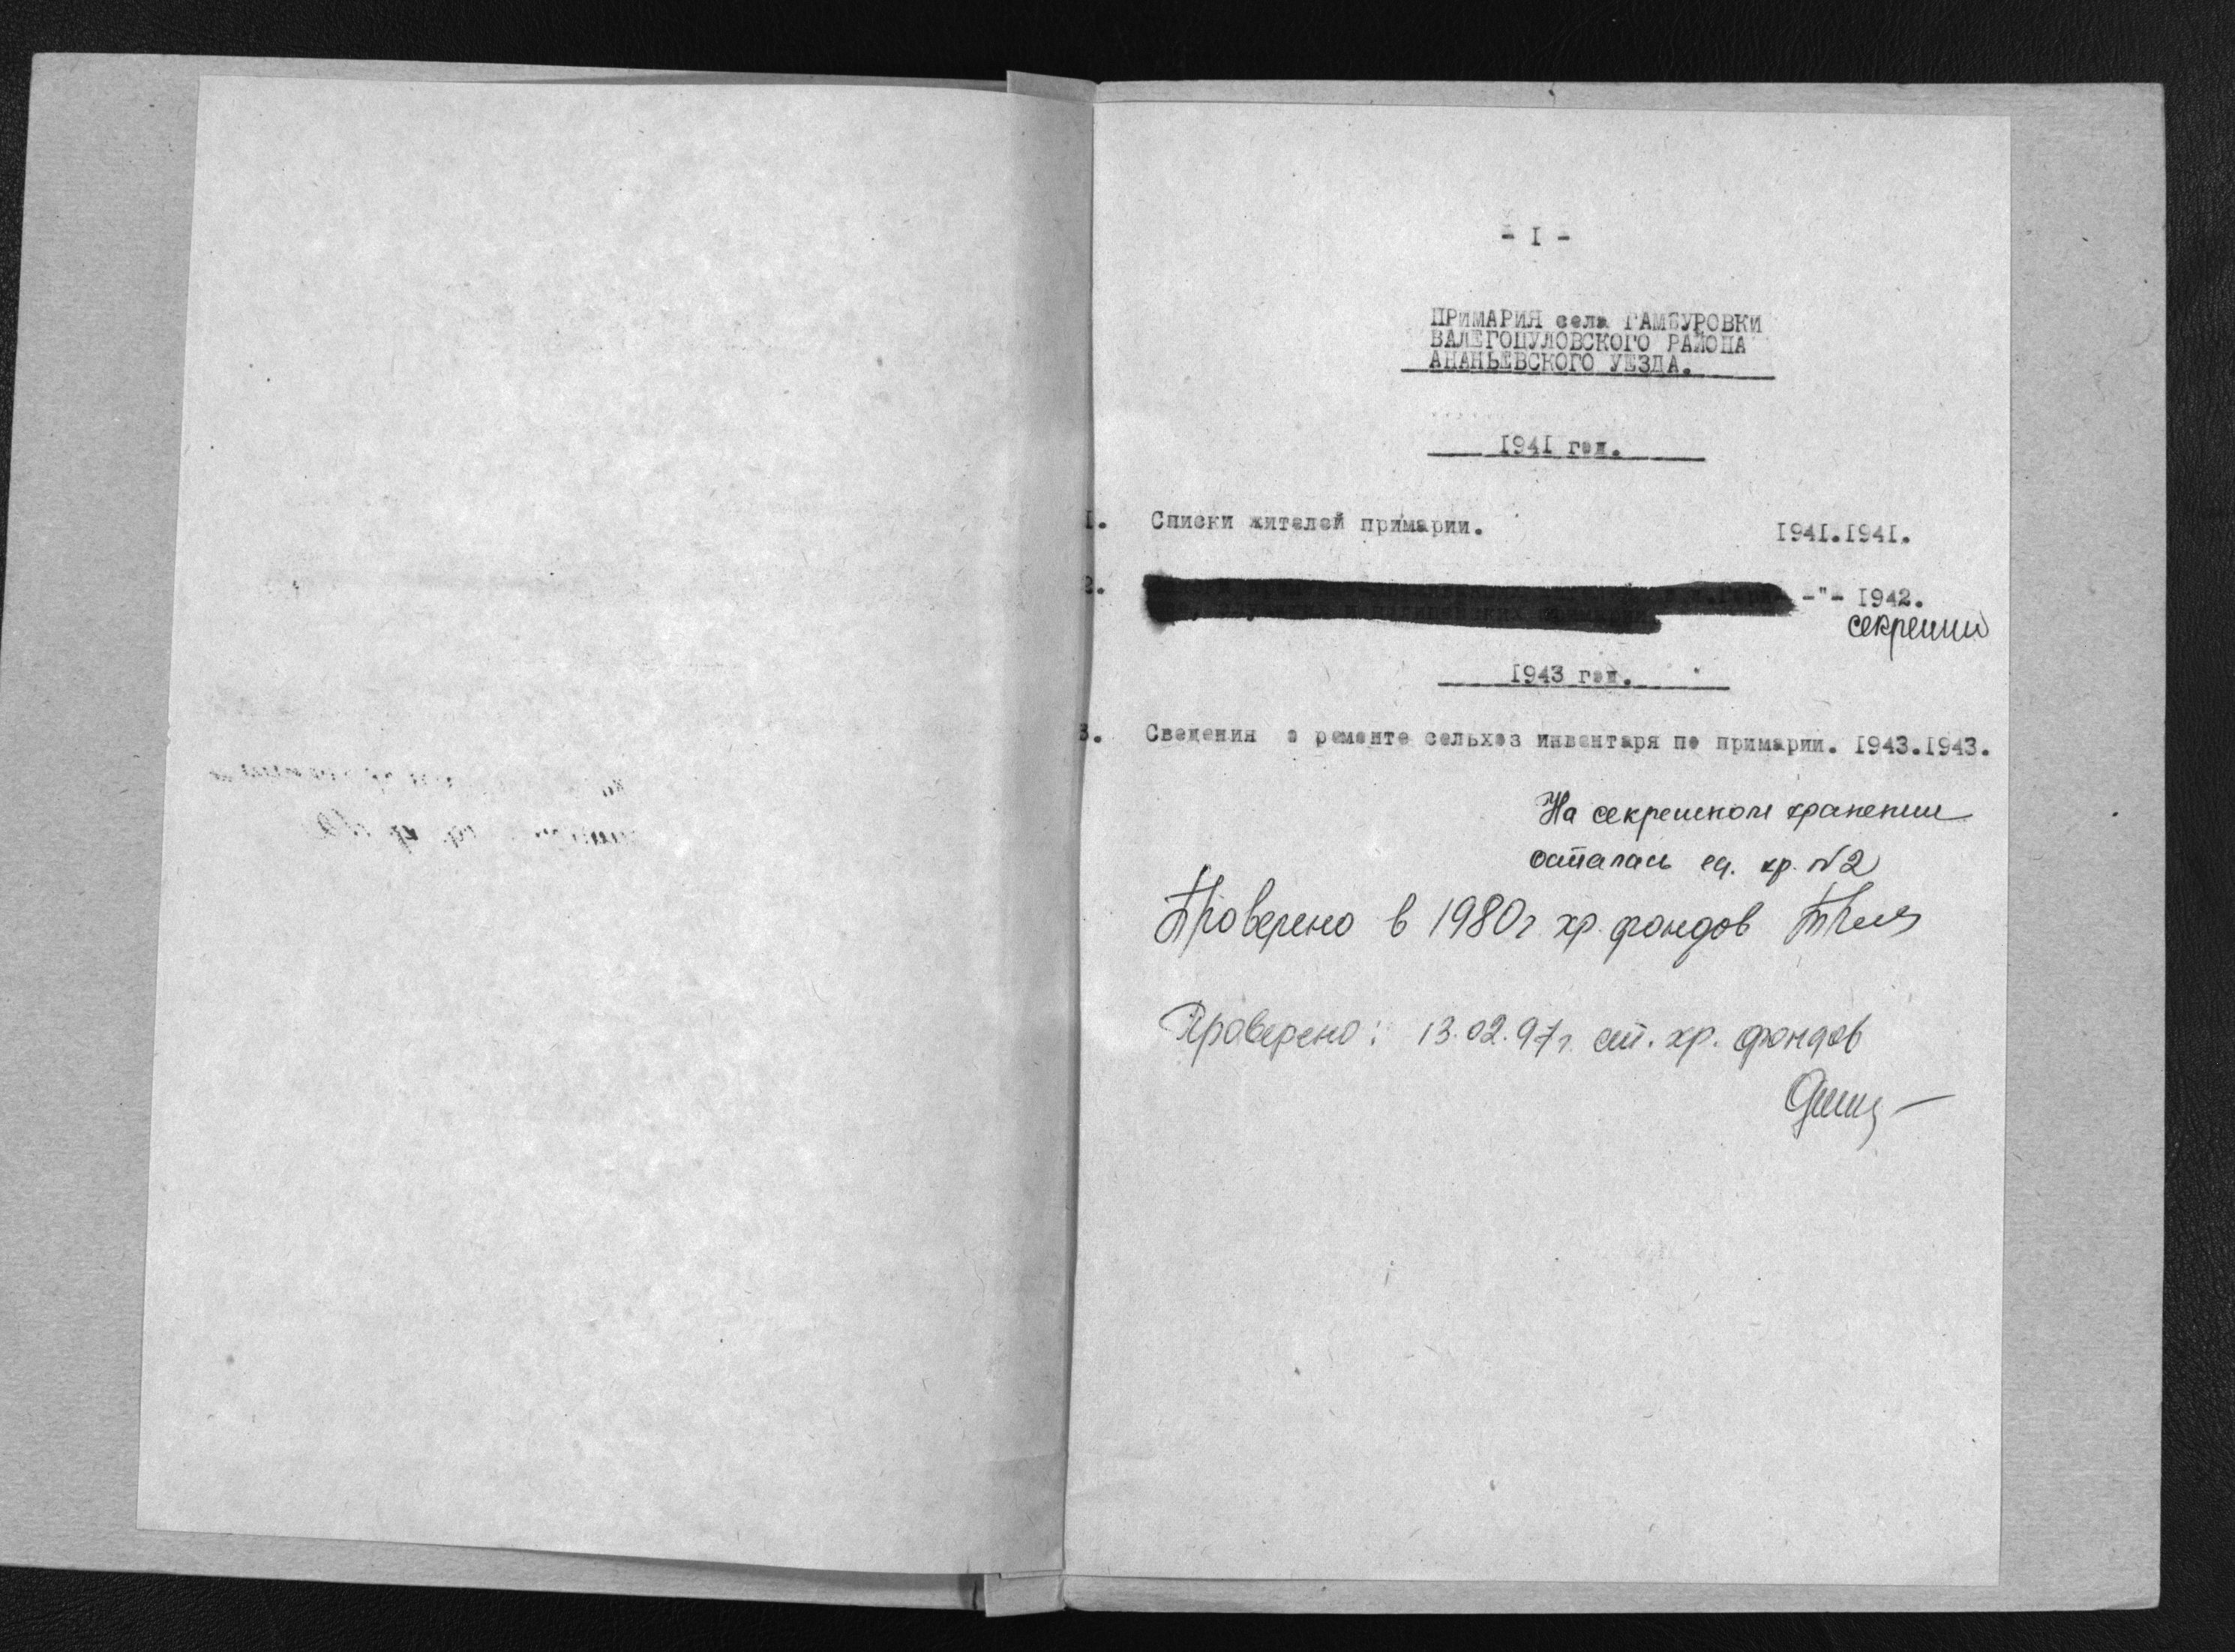 - I -
ПРИМАРИЯ села ГАМБУРОВКИ
ВАЛЕГОЦУЛОВСКОГО РАЙОНА
АНАНЬЕВСКОГО УЕЗДА.
1941 год.
1. Списки жителей примарии. 1941.1941.
2. -"- 1942.
секретн
1943 год.
3. Сведения о ремонте сельхоз инвентаря по примарии. 1943.1943.
На секретном хранении
осталась ед. хр. №2
Проверено в 1980г хр. фондов
Проверено: 13.02.97г. ст. хр. фондов